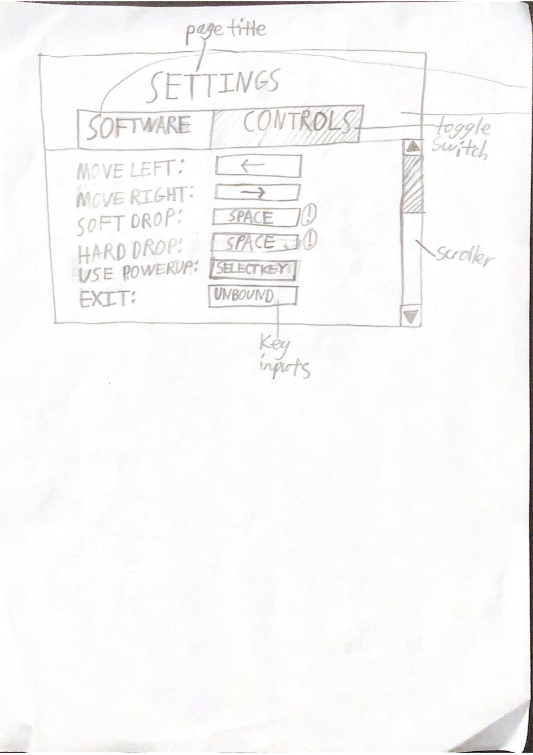 page title
SETTINGS
SOFTWARE CONTROLS
toggle
switch
MOVE LEFT: ←
MOVE RIGHT: →
SOFT DROP: SPACE !
HARD DROP: SPACE !
scroller
USE POWERUP: SELECT KEY
EXIT: UNBOUND
key
inputs